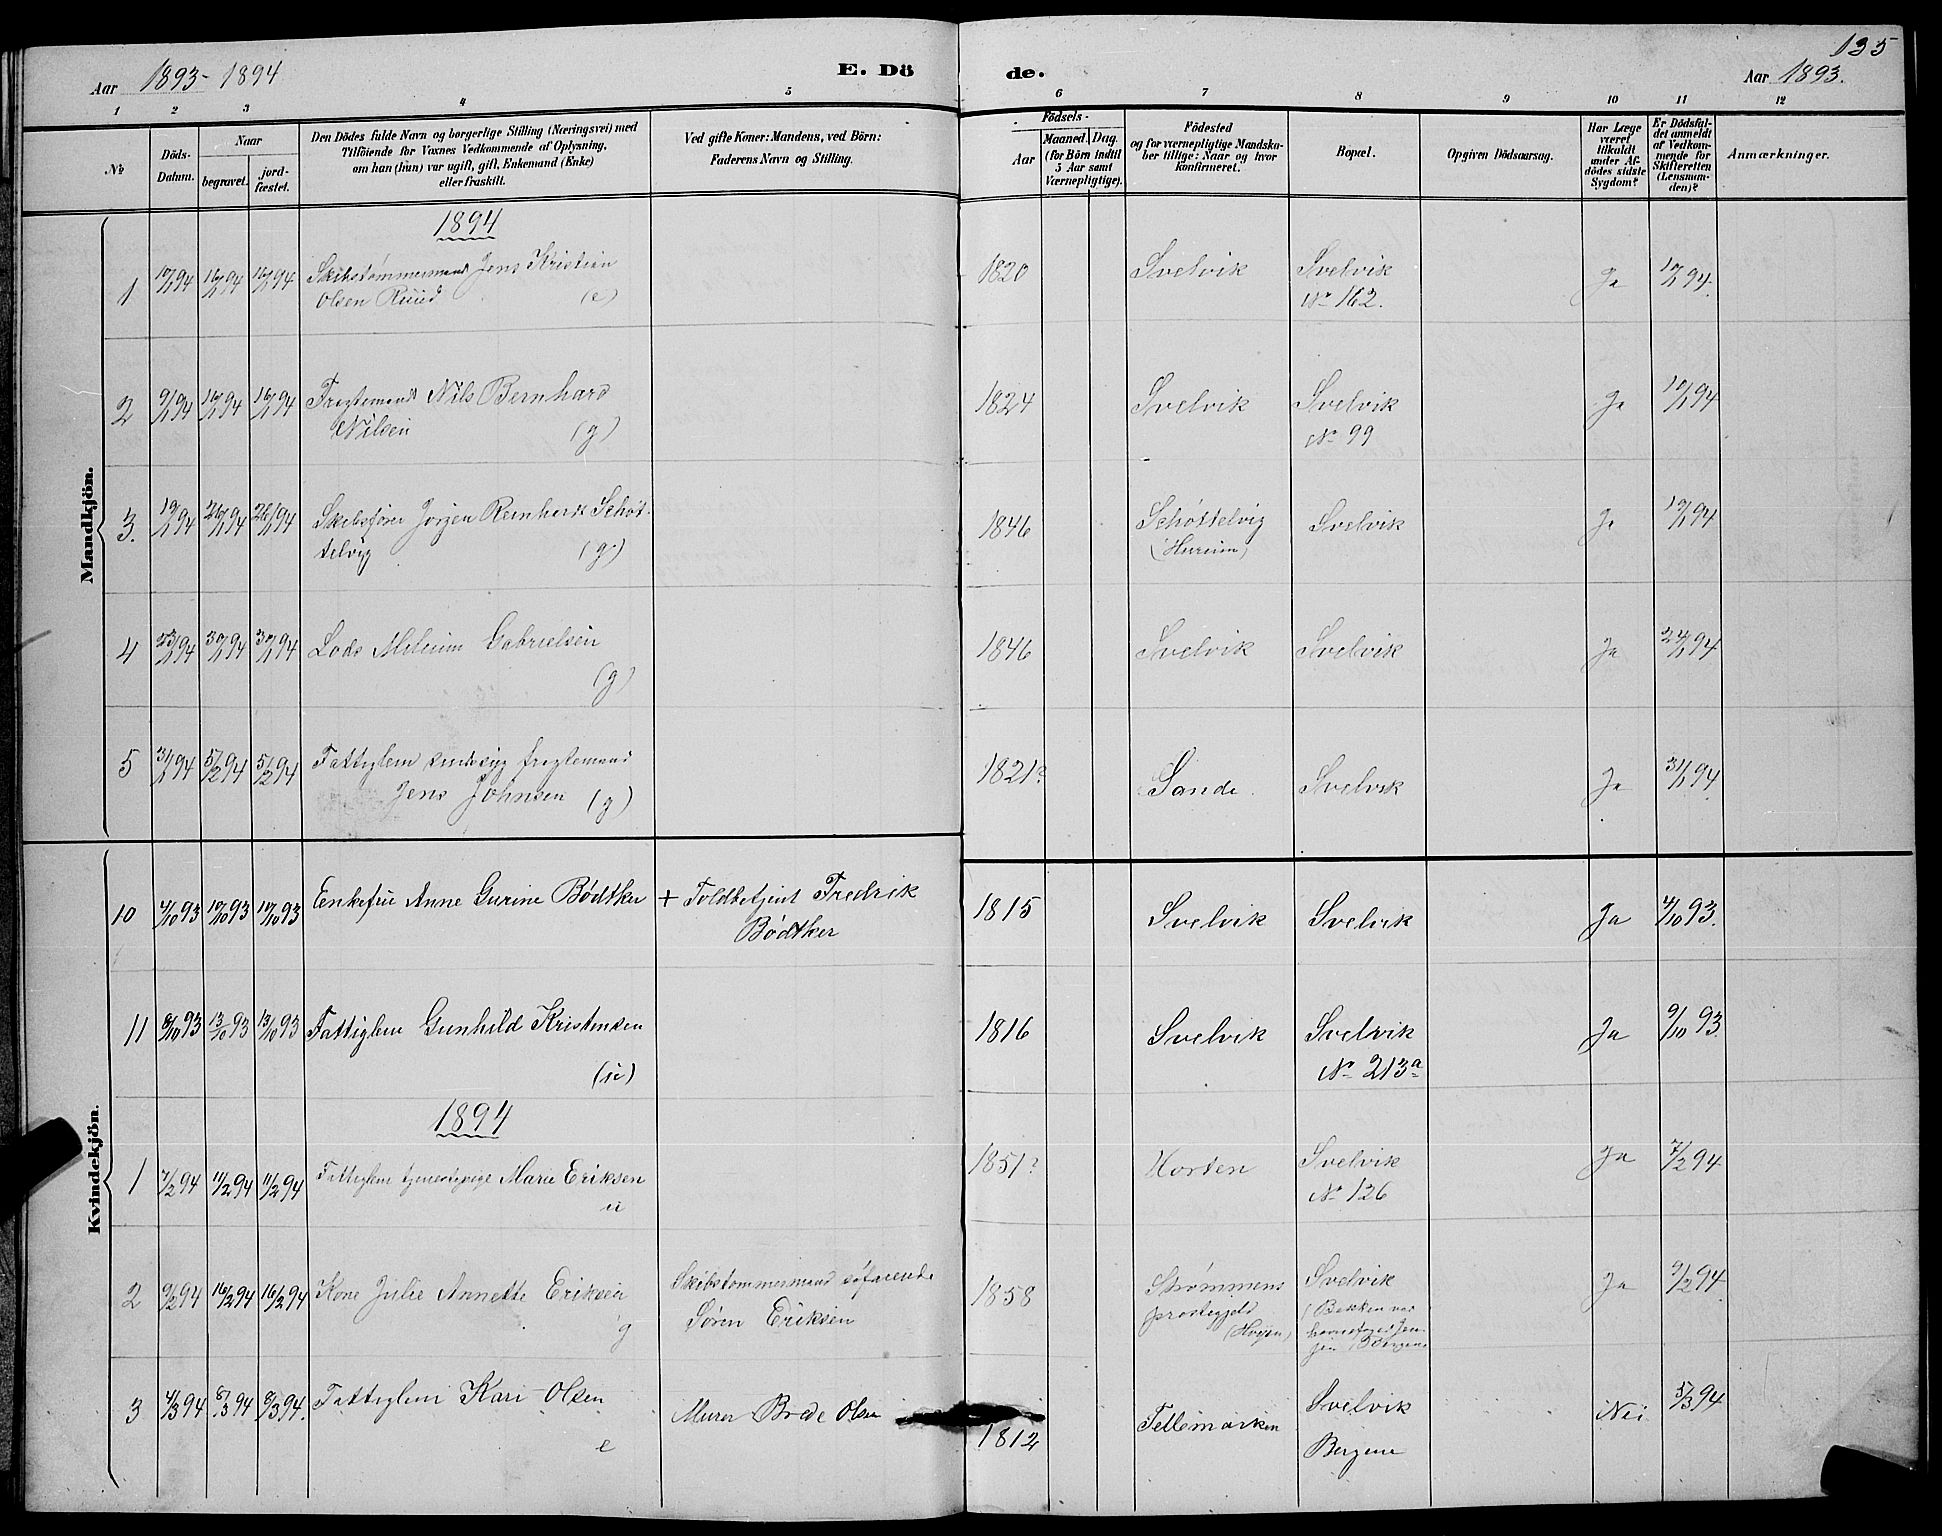 135
Aar 1893-1894
E. Dö
de.
Aar 1893.
1 2 3 4 5 6 7 8 9 10 11 12
№
Döds-
Datum.
Naar
begravet.
jord-
fæstet.
Den Dödes fulde Navn og borgerlige Stilling (Næringsvei) med
Tilföiende for Voxnes Vedkommende af Oplysning,
om han (hun) var ugift, gift, Enkemand (Enke)
eller fraskilt.
Ved gifte Koner: Mandens, ved Börn:
Faderens Navn og Stilling.
Födsels-
Aar
Maaned. Dag.
(for Börn indtil
5 Aar samt
Værnepligtige).
Födested
og for værnepligtige Mandska-
ber tillige: Naar og hvor
konfirmeret.
Bopæl.
Opgiven Dödsaarsag.
Har Læge
været
tilkaldt
under Af-
dödes sidste
Sygdom?
Er Dödsfal-
det anmeldt
af Vedkom-
mende for
Skifteretten
(Lensman-
den)?
Anmærkninger.
Mandkjön.
1894
1 10/1 94 16/1 94 16/1 94 Skibstømmermand Jens Kristian 1820 Svelvik Svelvik Ja 10/1 94.
Olsen Ruud (e) № 162.
2 9/1 94 16/1 94 16/1 94 Fragtemand Nils Bernhard 1824 Svelvik Svelvik Ja 10/1 94
Nilsen (g) № 99
3. 19/1 94 26/1 94 26/1 94 Skibsfører Jørgen Reinhardt Schøt- 1846 Schøttelvig Svelvik Ja 19/1 94
telvig (g) (Hurum)
4 23/1 94 30/1 94 30/1 94 Lods Gabrielsen 1846 Svelvik Svelvik Ja 24/1 94
(g)
5 31/1 94 5/2 94 5/2 94 Fattiglem sindssyg fragtemand 1821? Sande. Svelvik Ja 31/1 94
Jens Johnsen (g)
Kvindekjön.
10 4/10 93 10/10 93 10/10 93 Enkefru Anne Gurine Bødtker + Toldbetjent Fredrik 1815 Svelvik Svelvik Ja 4/10 93.
Bødtker
11 8/10 93 13/10 93 13/10 93 Fattiglem Gunhild Kristensen 1816 Svelvik Svelvik Ja 9/10 93
(u) № 213a
1894
1 7/2 94 11/2 94 11/2 94 Fattiglem tjenestepige Marie Eriksen 1851? Horten Svelvik Ja 7/2 94
u № 126
2 9/2 94 16/2 94 16/2 94 Kone Julie Annette Eriksen Skibstømmermand søfarende 1858 Strømmens Svelvik Ja 9/2 94
g Søren Eriksen prestegjeld
3 4/3 94 8/3 94 8/3 94. Fattiglem Kari Olsen Murer Olsen 1812 Tellemarken Svelvik Nei 5/3 94
e Bergene